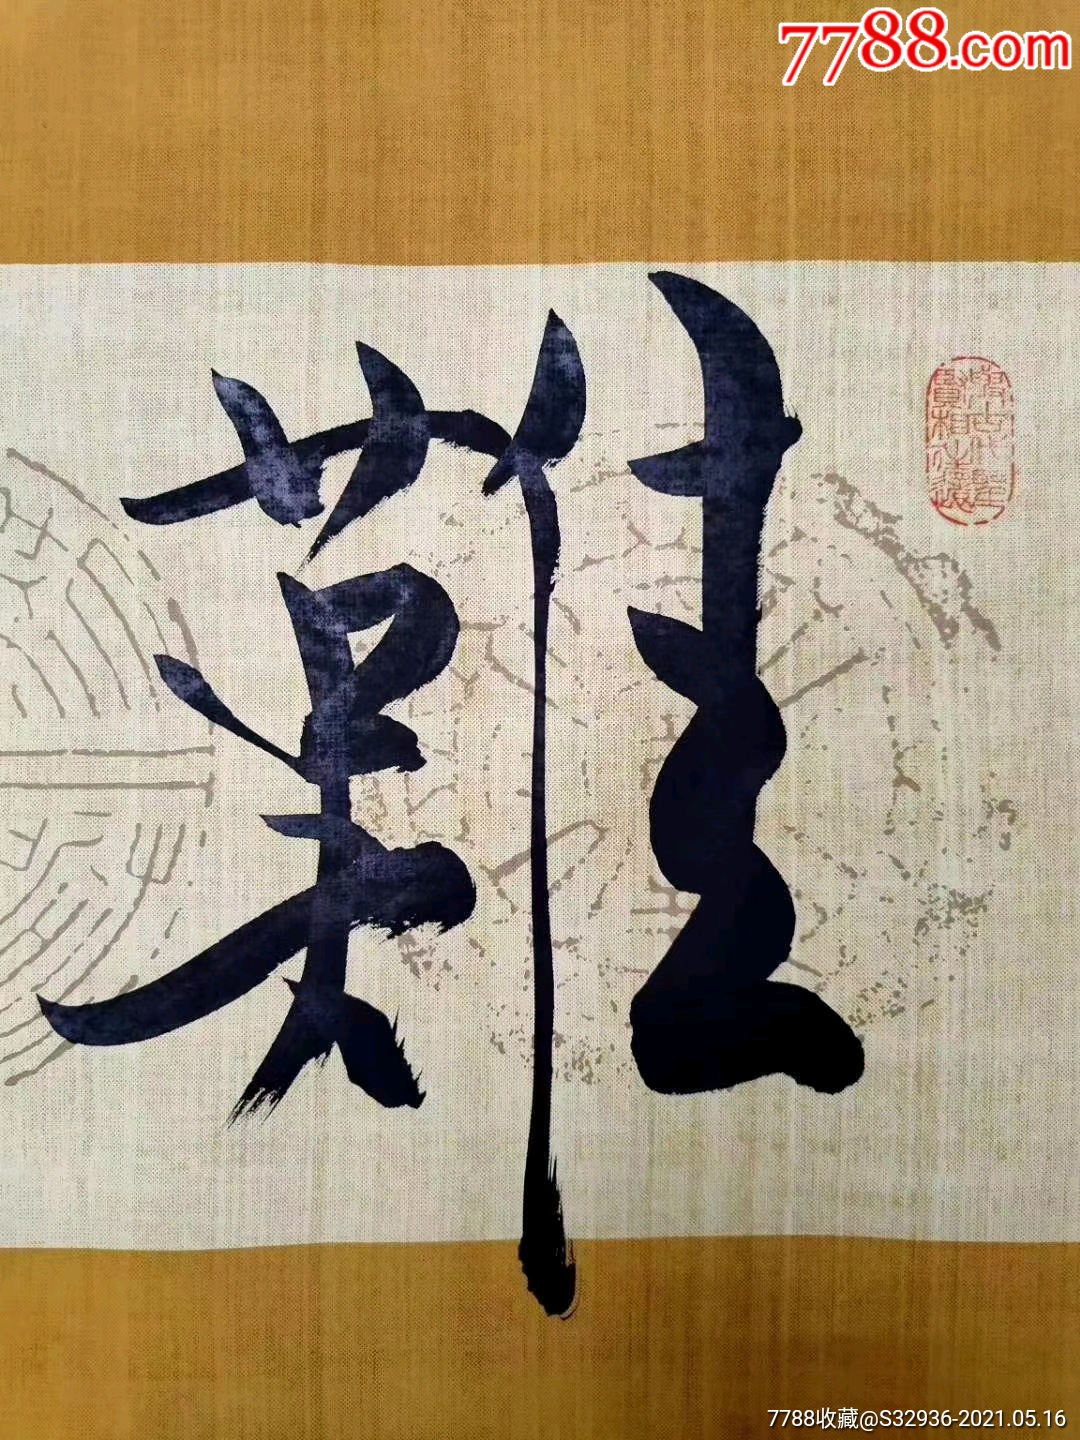 7788.com
難
7788收藏@S32936-2021.05.16